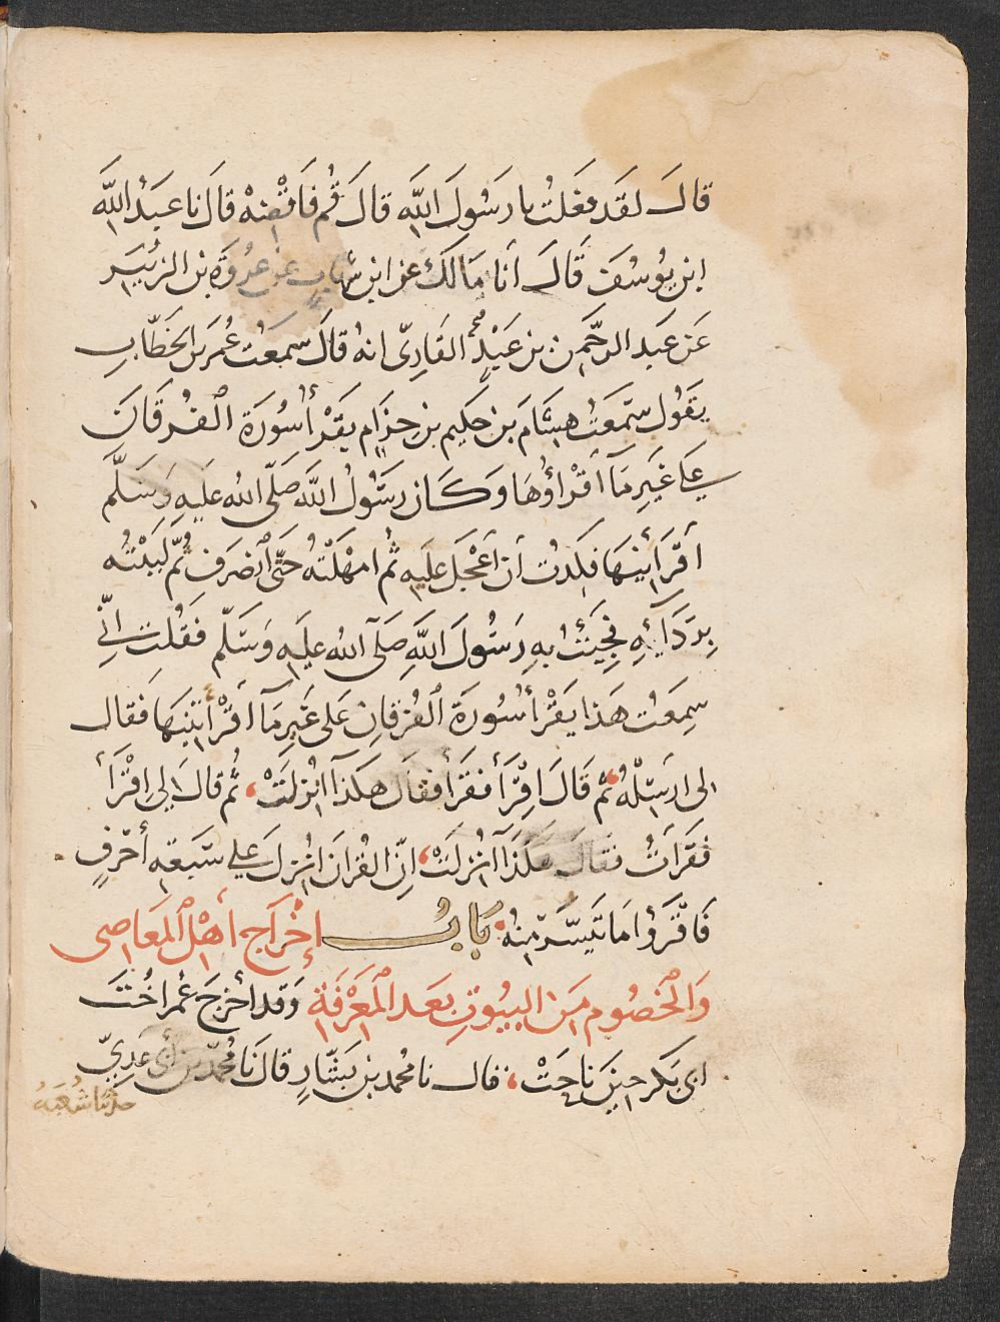 قالَ لقَد فعَلتُ يا رَسُولَ اللَّهِ قالَ قُم فَاقْضِهْ قالَ نا عبَدُ اللَّهِ
ابن يوُسُفَ قَالَ أنا مَالكُ عن ابن شهاب عن عُروَةَ بن الزُبيَر
عَن عبَد الرحَّمن بن عَبْدٍ القَارِىّ انهُ قالَ سمعَتُ عُمرَ بن الخطَّابِ
يقَول سمَّعَتُ هشَامَ بن حَكيم بن حِزَامٍ يقَرَأ سُورَة الفُرقَانَ
علَى غيَرِ مَآ أقْرأؤُهَا وَكَان رسَوُلُ اللَّه صَلّى الله عَليَهِ وَسَلَّم
أقرَأَنيهَا فَكدتُ أن أعْجَل عَليَهِ ثُم امهَلْتهُ حَتّى اُنصَرفَ ثُمّ لَبَبْتُه
بِردَآيِهِ فجِيَتُ بهِ رَسُولَ اللَّهِ صَلّى الله عَليَهِ وَسَلّم فقَلُت إنِّي
سمِعَتُ هَذا يقَرَأُ سُورَة الفُرقانِ عَلى غَيرِ مَآ اقرَأْتَنيهَا فَقال
لى ارسَلْهُ ثُم قَالَ اقِرَأ فقَرَأ فقَال هَكذَآ انُزلَتْ، ثُم قالَ لِى اِقْرَأ
فقَرَاتُ فقالَ هَكَذَآ انُزلَتْ، اِنّ القُرانَ انُزلَ علي سَبَعةِ أحرفٍ
فَاقْرَؤُا مَا تيَسَّرَ مِنهُ بَابُ إخْراَجِ أهْل المَعَاصى
وَالخصُوم مِنَ البيُوتِ بعَد المَعْرفَةِ وَقد أخرجَ عُمر اخُتَ
ابى بَكر حينَ ناحَتْ، قال نا محُمد بن بَشّارٍ قالَ نا محُمّد بن أبى عَدِىّ
حدثنا شُعبَهُ